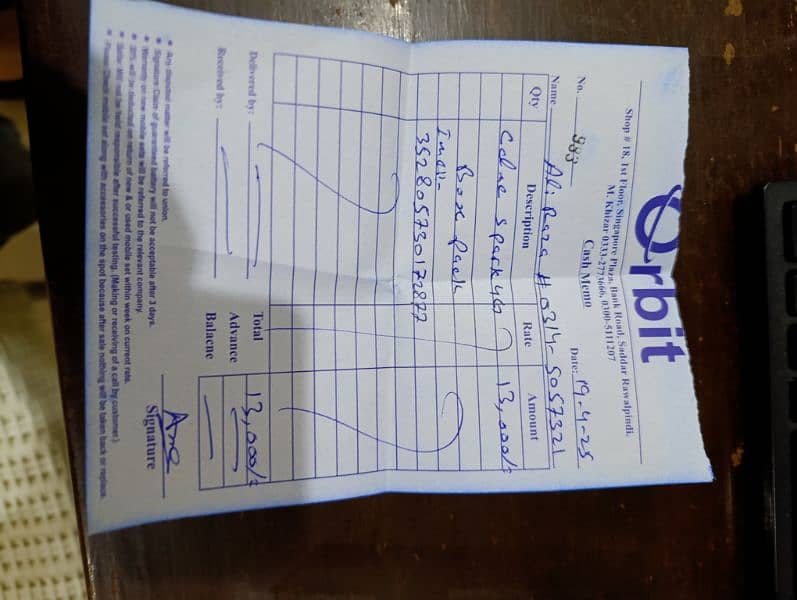 Orbit
Shop # 18, 1st Floor, Singapore Plaza, Bank Road, Saddar Rawalpindi.
M. Khizar 0333-2773666, 0300-5111207
Cash Memo
No. 983 Date: 19-4-25
Name Ali Raza # 0314-5057321
Qty Description Rate Amount
Calme Spark 4G 13,000/=
Box Pack
352805730172877
Total 13,000/=
Delivered by: Advance
Received by: Balacne
Signature
● Any disputed matter will be referred to union.
● Signature Claim of guaranteed battery will not be acceptable after 3 days.
● Warranty on new mobile sets will be referred to the relevant company.
● 20% will be deducted on return of new & or used mobile set within week on current rate.
● Seller Will not be held responsible after successful testing. (Making or receiving of a call by customer.)
● Please Check mobile set along with accessories on the spot because after sale nothing will be taken back or replace.